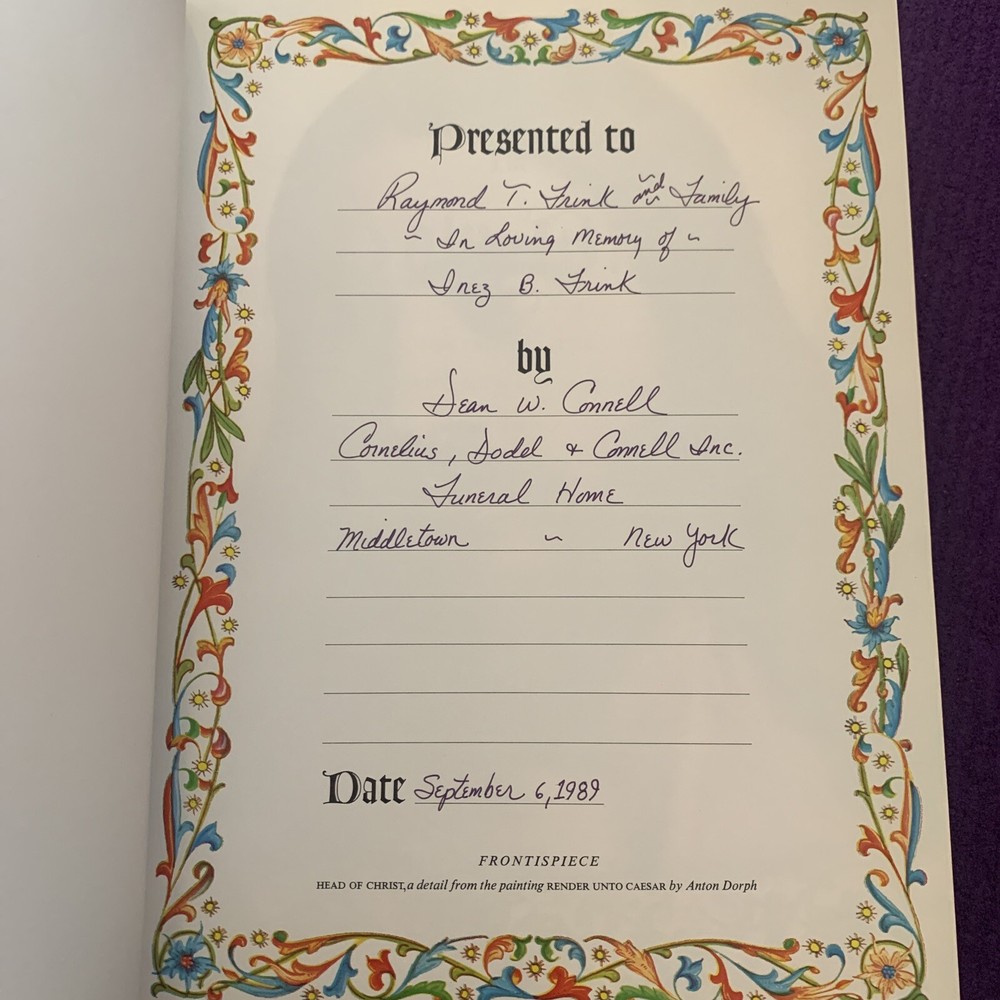 Presented to
Raymond T. Frink and Family
~ In Loving Memory of ~
Inez B. Frink
by
Dean W. Connell
Cornelius, Dodd & Connell Inc.
Funeral Home
Middletown ~ New York
Date September 6, 1989
FRONTISPIECE
HEAD OF CHRIST, a detail from the painting RENDER UNTO CAESAR by Anton Dorph